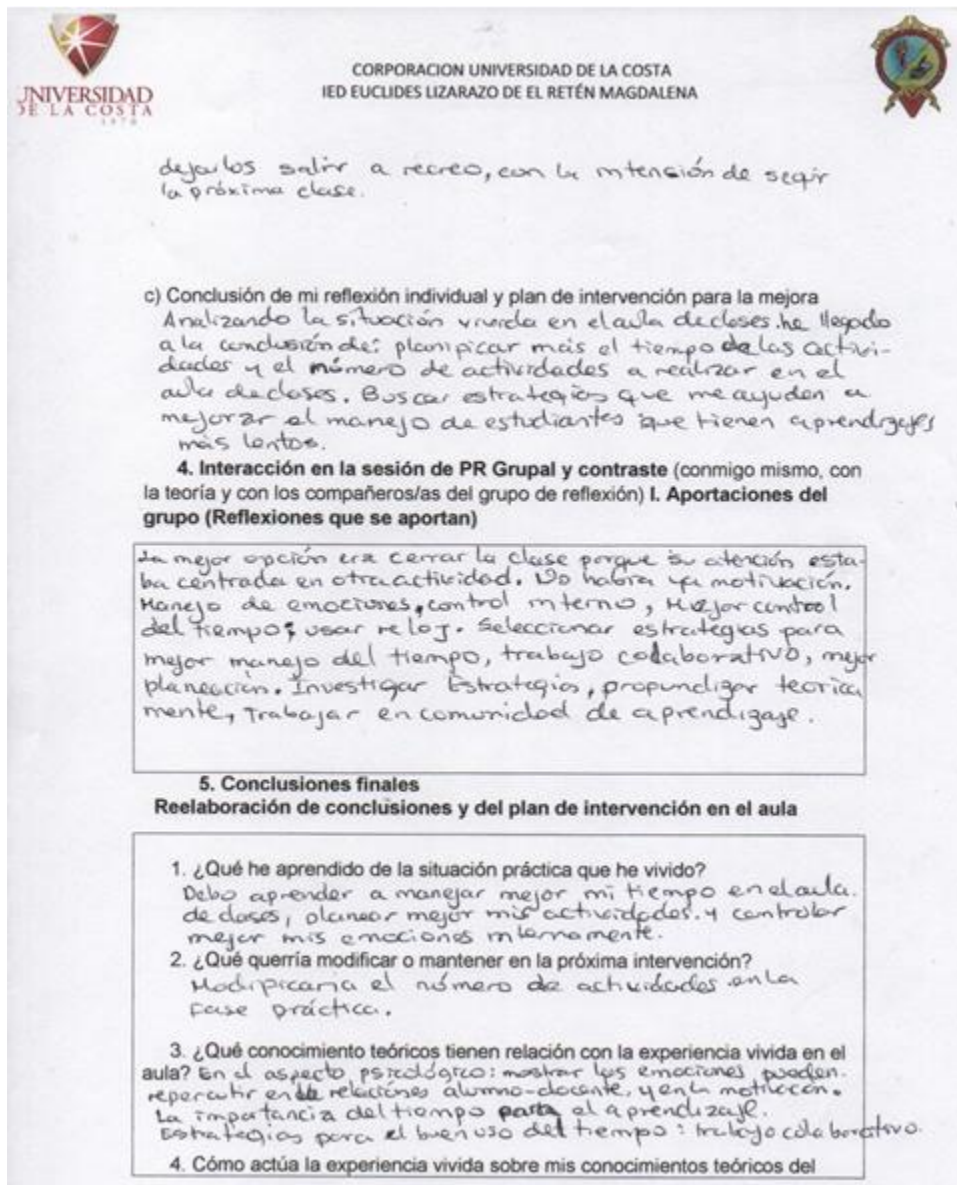 UNIVERSIDAD
DE LA COSTA
1970
CORPORACION UNIVERSIDAD DE LA COSTA
IED EUCLIDES LIZARAZO DE EL RETÉN MAGDALENA
dejarlos salir a recreo, con la intención de segir
la próxima clase.
c) Conclusión de mi reflexión individual y plan de intervención para la mejora
Analizando la situación vivida en el aula de clases. he llegado
a la conclusión de: planipicar más el tiempo de las activi-
dades y el número de actividades a realizar en el
aula de clases. Buscar estrategias que me ayuden a
mejorar el manejo de estudiantes que tienen aprendizajes
más lentos.
4. Interacción en la sesión de PR Grupal y contraste (conmigo mismo, con
la teoría y con los compañeros/as del grupo de reflexión) I. Aportaciones del
grupo (Reflexiones que se aportan)
La mejor opción era cerrar la clase porque su atención esta-
ba centrada en otra actividad. No habría ya motivación.
Manejo de emociones, control interno, Mejor control
del tiempo; usar reloj. Seleccionar estrategias para
mejor manejo del tiempo, trabajo colaborativo, mejor
planeación. Investigar Estrategias, propundizar teorica
mente, Trabajar en comunidad de aprendizaje.
5. Conclusiones finales
Reelaboración de conclusiones y del plan de intervención en el aula
1. ¿Qué he aprendido de la situación práctica que he vivido?
Debo aprender a manejar mejor mi tiempo en el aula.
de clases, planear mejor mis actividades. y controlar
mejor mis emociones internamente.
2. ¿Qué querría modificar o mantener en la próxima intervención?
Modipicaria el número de actividades en la
fase práctica.
3. ¿Qué conocimiento teóricos tienen relación con la experiencia vivida en el
aula? En el aspecto psicológico: mostrar las emociones pueden.
repercutir en relaciones alumno-docente, y en la motivación.
La importancia del tiempo para el aprendizaje.
Estrategias para el buen uso del tiempo: trabajo colaborativo.
4. Cómo actúa la experiencia vivida sobre mis conocimientos teóricos del